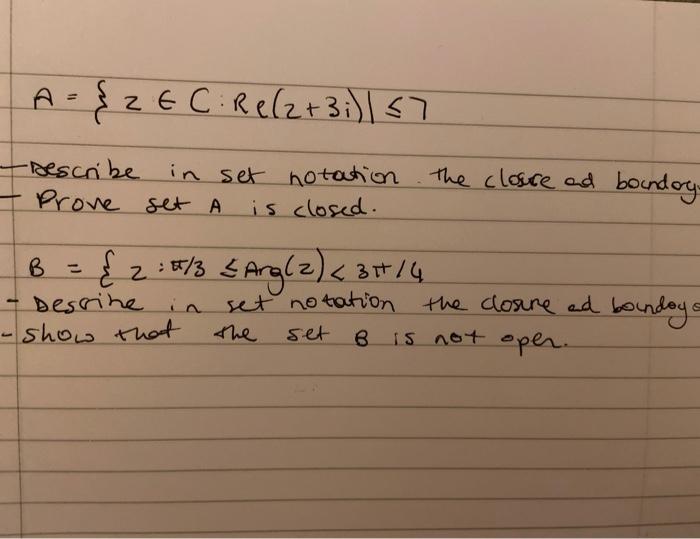 A = { z ∈ C : Re(z+3i)| ≤ 7
- Describe in set notation the closure ad boundary
- Prove set A is closed.
B = { z : π/3 ≤ Arg(z) < 3π/4
- Descrine in set notation the closure ad boundays
- show that the set B is not open.